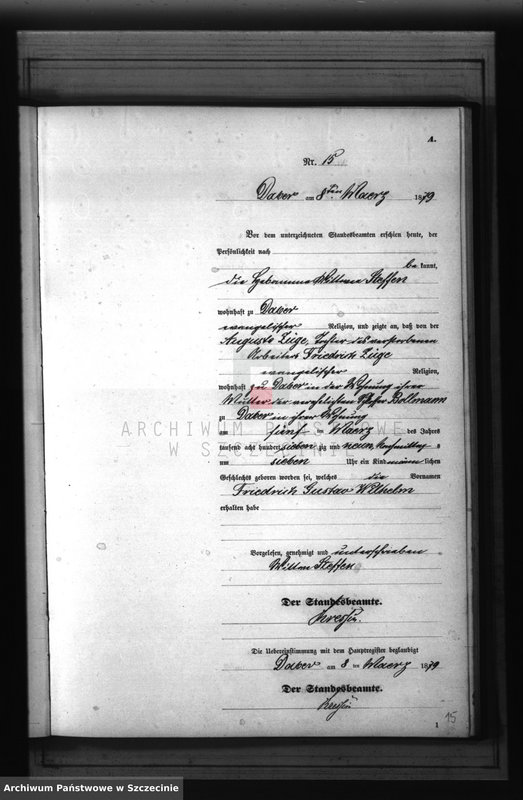 A.
Nr. 15
Daber am 8ten Maerz 1879
Vor dem unterzeichneten Standesbeamten erschien heute, der
Persönlichkeit nach
be kannt,
die Hebamme Wittwe Steffen
wohnhaft zu Daber
evangelischer Religion, und zeigte an, daß von der
Auguste Züge, Tochter des verstorbenen
Arbeiters Friedrich Züge
evangelischer Religion,
wohnhaft zu Daber in der Wohnung ihrer
Mutter der verehelichten Bollmann
zu Daber in ihrer Wohnung
am fünf ten Maerz des Jahres
tausend acht hundert sieben zig und neun, Nachmittag s
um sieben Uhr ein Kind männ lichen
Geschlechts geboren worden sei, welches die Vornamen
Friedrich Gustav Wilhelm
erhalten habe
Vorgelesen, genehmigt und unterschrieben
Wittwe Steffen
Der Standesbeamte.
Die Uebereinstimmung mit dem Hauptregister beglaubigt
Daber am 8 ten Maerz 1879
Der Standesbeamte.
15
1
ARCHIWUM PAŃSTWOWE
W SZCZECINIE
Archiwum Państwowe w Szczecinie